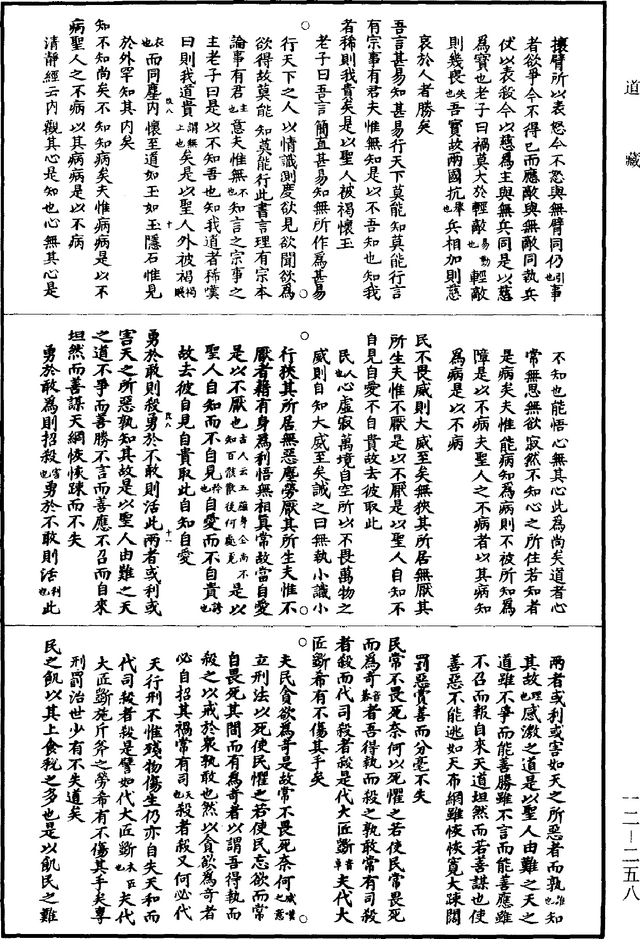 道藏
攘臂所以表怒今不怒與無臂同仍引也事
者欲爭今不得已而應敵與無敵同執兵
伏以表殺今以慈為主與無兵同是以慈
為寶也老子曰禍莫大於輕敵易動也輕敵
則幾喪失也吾寶故兩國抗舉也兵相加則慈
哀於人者勝矣
吾言甚易知甚易行天下莫能知莫能行言
有宗事有君夫惟無知是以不吾知也知我
者稀則我貴矣是以聖人被褐懷玉
老子曰吾言簡直甚易知無所作為甚易
行天下之人以情識測度欲見欲聞欲為
欲得故莫能知莫能行此書言理有宗本
論事有君主也意夫惟無不也知言之宗事之
主老子曰是以不知吾也知我道者稀嘆
曰則我道貴謂無上也矣是以聖人外被褐
衣也而同塵內懷至道如玉如玉隱石惟見
於外罕知其內矣
知不知尚矣不知知病矣夫惟病病是以不
病聖人之不病以其病病是以不病
清靜經云內觀其心是知也心無其心是
不知也能悟心無其心此為尚矣道者心
常無思無欲寂然不知心之所住若知者
是病矣夫惟能病知為病則不被所知為
障是以不病夫聖人之不病者以其病知
為病是以不病
民不畏威則大威至矣無狹其所居無厭其
所生夫惟不厭是以不厭是以聖人自知不
自見自愛不自貴故去彼取此
民人也心虛寂萬境自空所以不畏萬物之
威則自知大威至矣誡之曰無執小識小
行狹其所居無惡塵勞厭其所生夫惟不
厭者藉有身為利悟無相真常故當自愛
是以不厭也古人云五蘊身全尚不知百骸散後何處覓是以
聖人自知而不自見矜也自愛而不自貴誇也
故去彼自見自貴取此自知自愛
勇於敢則殺勇於不敢則活此兩者或利或
害天之所惡孰知其故是以聖人由難之天
之道不爭而善勝不言而善應不召而自來
坦然而善謀天網恢恢踈而不失
勇於敢為則招殺害也勇於不敢則活利也此
兩者或利或害如天之所惡者而孰誰也知
其故理也感激之道是以聖人由難之天之
道雖不爭而能善勝雖不言而能善應雖
不召而報自來天道坦然而若善謀也使
善惡不能逃如天布網雖恢恢寬大踈闊
罰惡賞善而分毫不失
民常不畏死奈何以死懼之若使民常畏死
而為奇音羈者吾得執而殺之孰敢常有司殺
者殺而代司殺者殺是代大匠斲音卓夫代大
匠斲希有不傷其手矣
夫民貪欲為奇是故常不畏死奈何感嘆之意
立刑法以死使民懼之若使民忘欲而常
自畏死其間而有為奇者以謂吾得執而
殺之以戒於衆孰敢也然以貪欲為奇者
必自招其禍常有司天也殺者殺又何必代
天行刑不惟殘物傷生仍亦自失天和而
代司殺者殺是譬如代大匠斲木匠也夫代
大匠斲施斤斧之勞希有不傷其手矣專
刑罰治世少有不失道矣
民之飢以其上食稅之多也是以飢民之難
一二—二五八